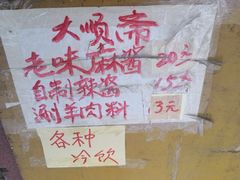 大顺斋
老味麻酱 20元
自制辣酱 15元
涮羊肉料 3元
各种
冷饮